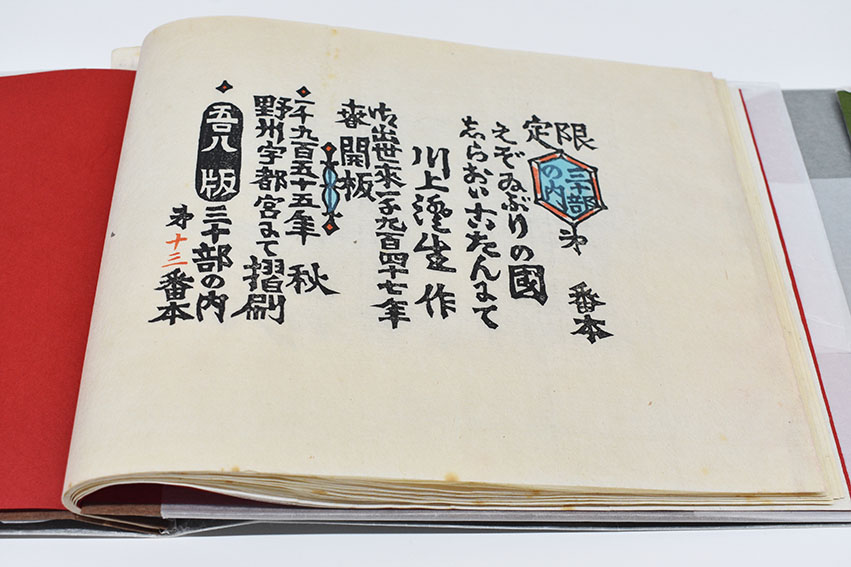 限定
三十部
の内
第 番本
えぞゐぶりの國
志らおいこたんにて
川上澄生 作
御出世来一千九百四十七年
春 開板
一千九百五十五年 秋
野州宇都宮にて摺刷
吾八版 三十部の内
第十三番本